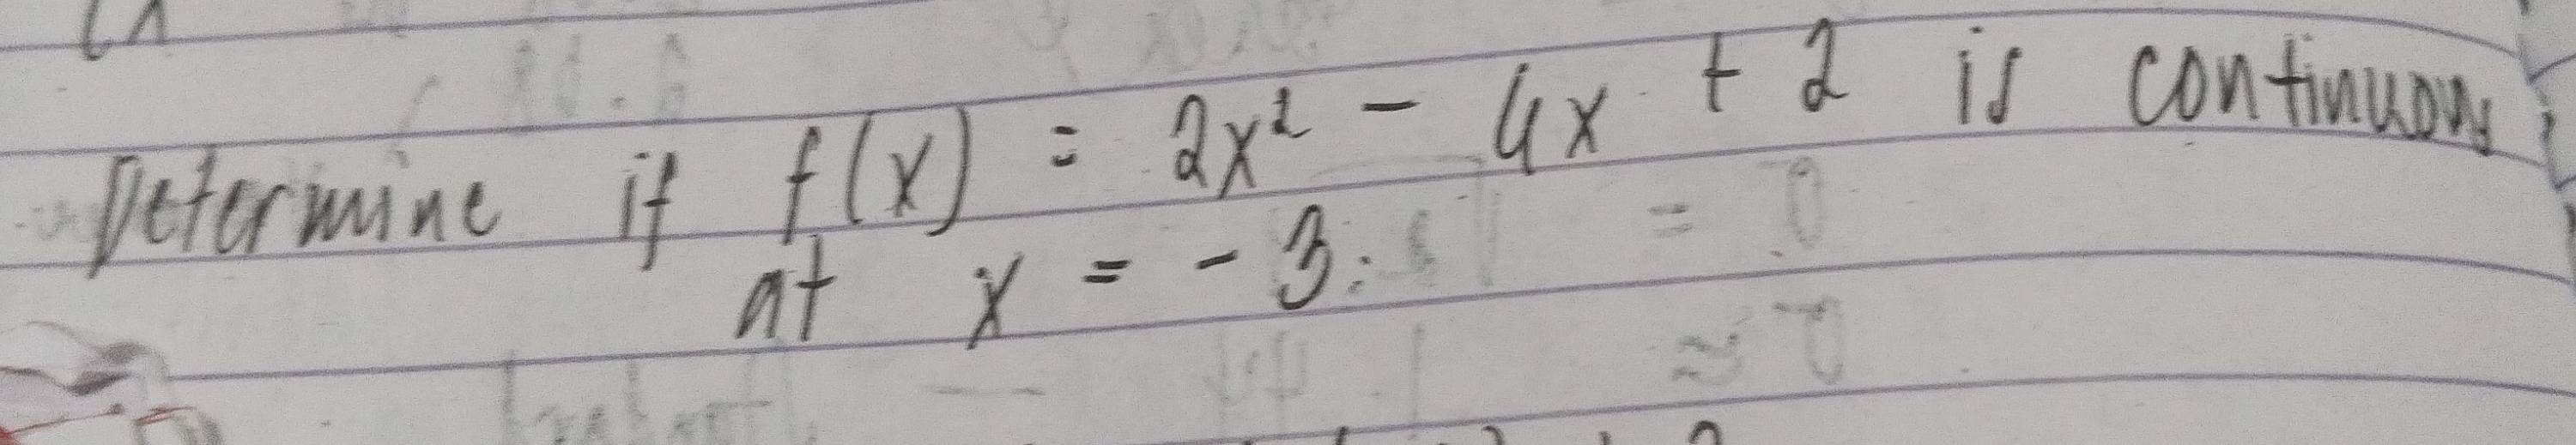 Determine if f(x) = 2x² - 4x + 2 is continuous
at x = -3.